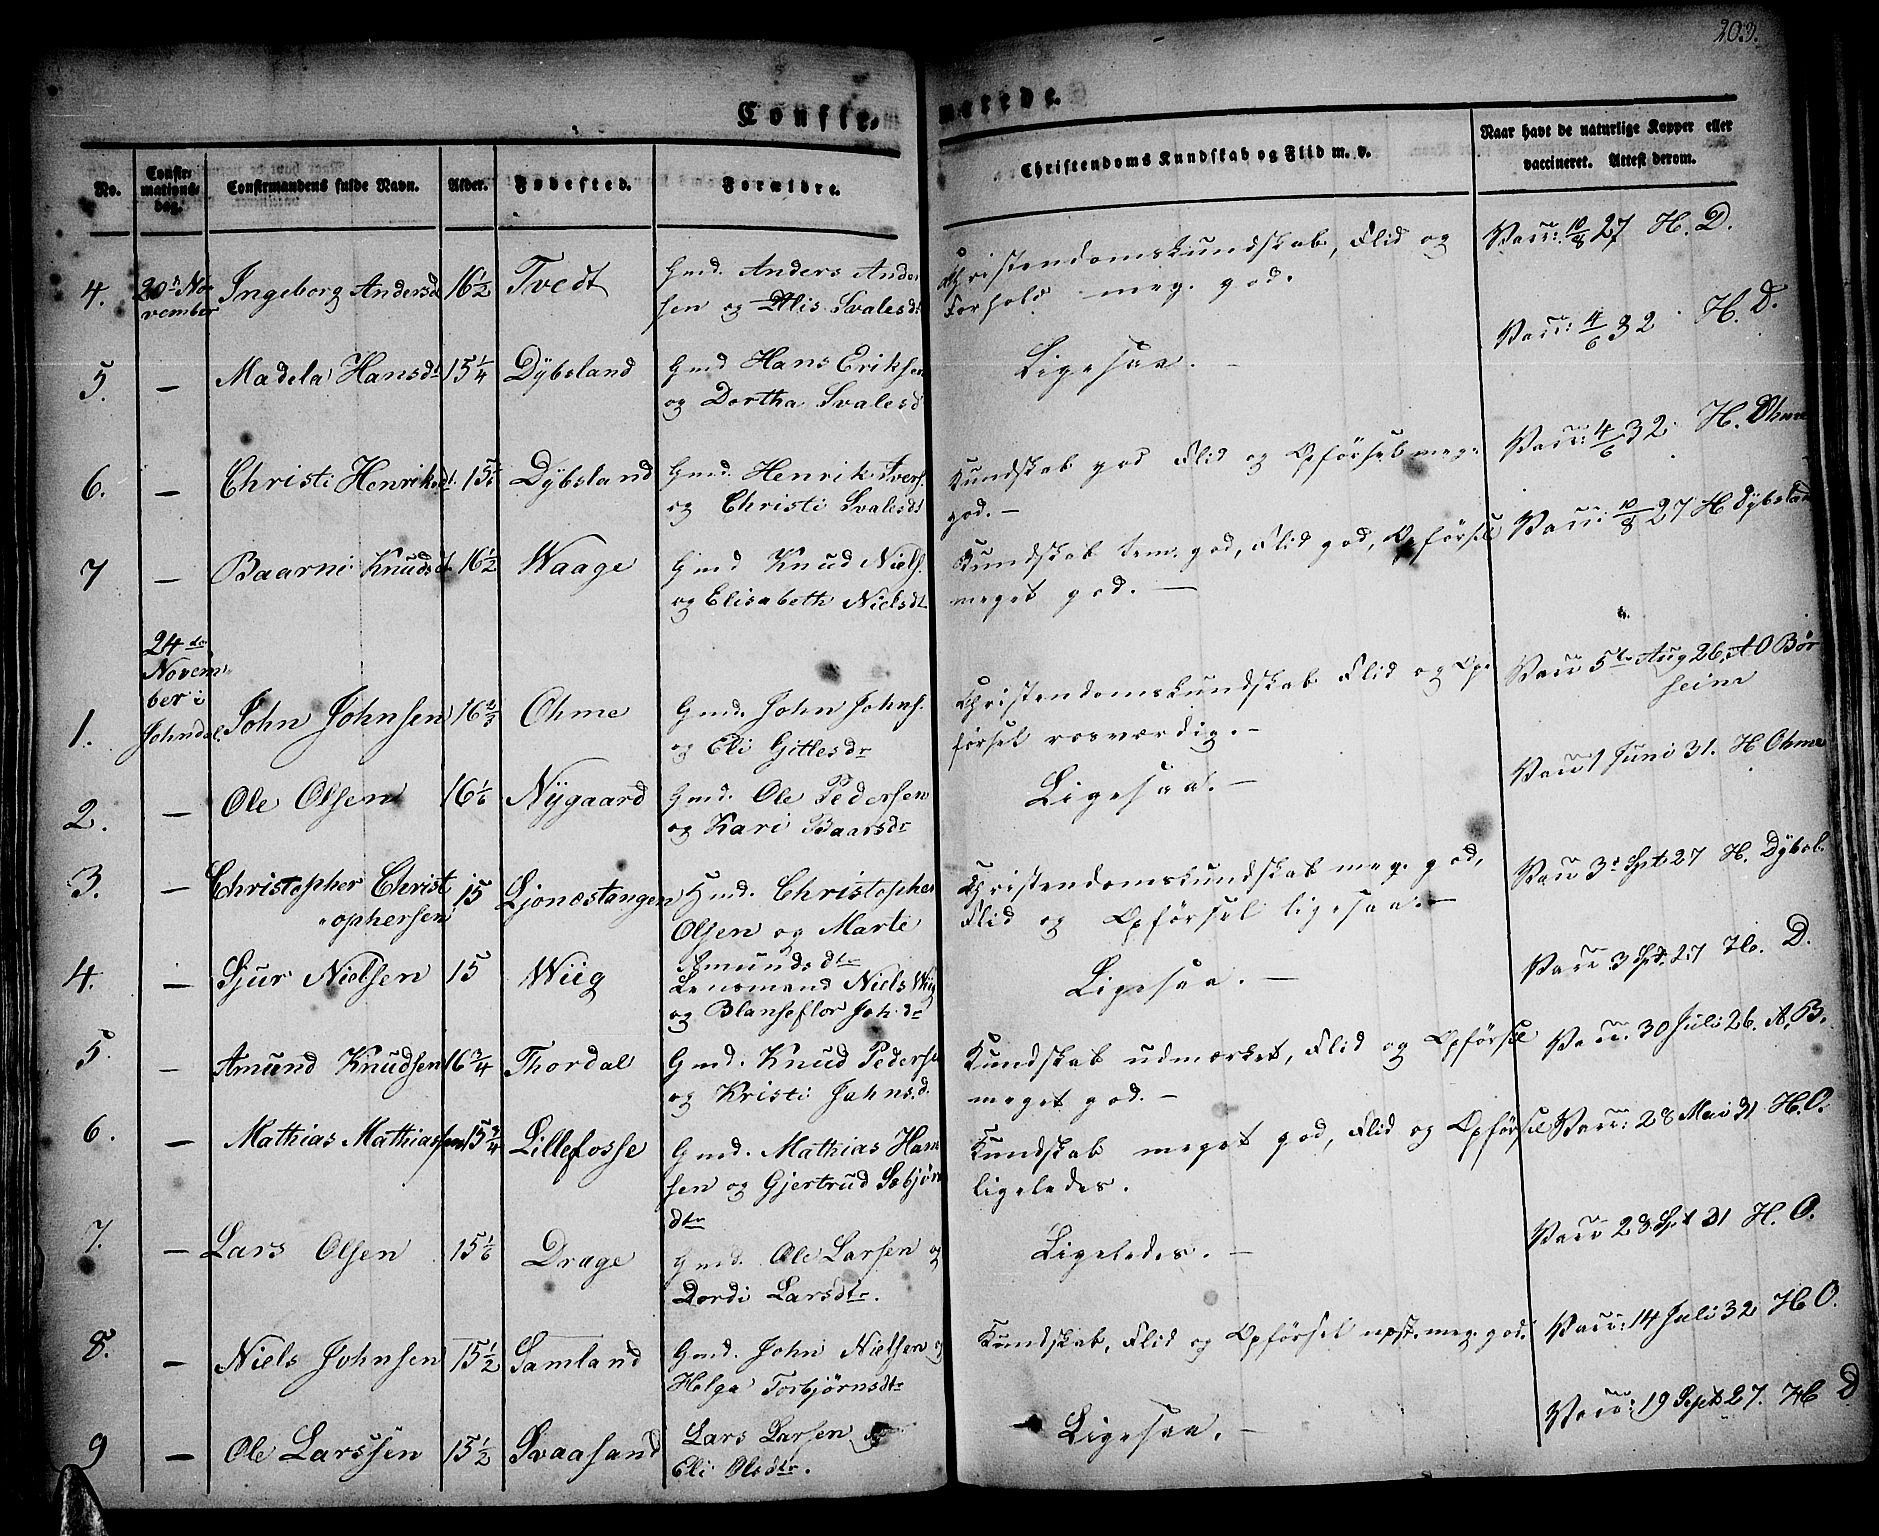 203.
Confir-
marrede.
No.
Confir-
mations-
dag.
Confirmandens fulde Navn.
Alder.
Fødested.
Forældre.
Christendoms Kundskab og Flid m. v.
Naar havt de naturlige Kopper eller
vaccineret. Attest derom.
4.
20de No-
vember
Ingeborg Andersd
16 1/2
Tvedt
Gmd. Anders Ander
sen og Svalesd
Christendomskundskab, Flid og
Forhold meg. god.
Vacc: 10/8 27 H. D.
5.
—
Madela Hansdt
15 1/4
Dybsland
Gmd Hans Eriksen
og Dortha Svalesd
Ligesaa. —
Vacc: 4/6 32 H. D.
6.
—
Christi Henriksdt.
15
Dybsland
Gmd. Henrik Ivers.
og Christi Svalesdt
Kundskab god Flid og Opförsel meg.
god. —
Vacc: 4/6 32. H. Ohme
7
—
Baarni Knudsdt
16 1/2
Waage
Gmd Knud Niels.
og Elisabeth Nielsdt
Kundskab tem. god, Flid god, Opförsel
meget god. —
Vacc: 10/8 27 H Dybsland
24de
Novem-
ber i
Johndal.
1.
John Johnsen
16
Ohme
Gmd. John Johns.
og Eli Gitlesdr
Christendomskundskab Flid og Op-
försel rosværdig. —
Vacc 5te Aug 26, A O Bör-
seim
2.
—
Ole Olsen
16 1/6
Nÿgaard
Gmd. Ole Pedersen
og Kari Baarsdr
Ligesaa. —
Vacc Juni 31. H Ohme
3.
—
Christopher Christ
ophersen
15
Ljonestangen
Hmd. Christopher
Olsen og Marte
Amundsdtr
Christendomskundskab meg. god,
Flid og Opförsel ligesaa. —
Vacc 3 Spt 27 H. Dÿbsl.
4.
—
Sjur Nielsen
15
Wiig
Lensmand Niels Wiig
og Blanseflor Joh.dr
Ligesaa. —
Vacc 3 Spt. 27 H. D.
5.
—
Amund Knudsen
16 3/4
Thordal
Gmd. Knud Pederse
og Kristi Johns.d.
Kundskab udmærket, Flid og Opförsel
meget god. —
Vacc. 30 Juli 26. A. B.
6.
—
Mathias Mathiassen
15 3/4
Lillefosse
Gmd. Mathias Han
sen og Gjertrud Sebjørn
dtr
Kundskab meget god, Flid og Opförsel
ligeledes.
Vacc: 28 Mai 31 H. O.
7.
—
Lars Olsen
15 1/6
Drage
Gmd. Ole Larsen og
Dordi Larsdtr.
Ligeledes. —
Vacc 28 Spt 31 H. O.
8.
—
Niels Johnsen
15 1/2
Samland
Gmd. John Nielsen og
Helga Torbjørnsdtr
Kundskab, Flid og Opförsel meg. god.
Vacc: 14 Juli 32 H O.
9
—
Ole Larssen
15 1/2
Svaasand
Lars Larsen og
Eli Olsdtr.
Ligesaa. —
Vacc: 19 Sept 27. H D